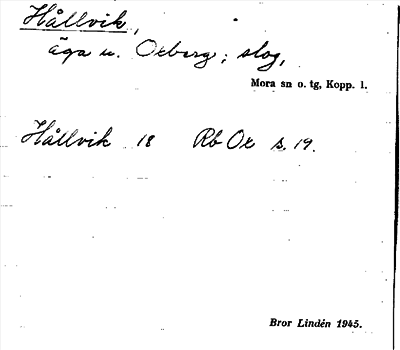 Hållvik,
äga u. Oxberg; slog,
Mora sn o. tg, Kopp. l.
Hållvik 18 Rb Ox s. 19.
Bror Lindén 1945.